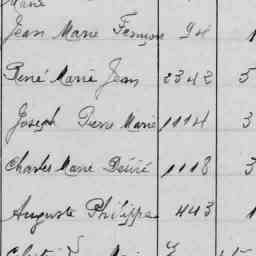 Marie
Jean Marie François 94 1
René Marie Jean 2342 5
Joseph Pierre Marie 1114 3
Charles Marie Désiré 1118 3
Auguste Philippe 443 1